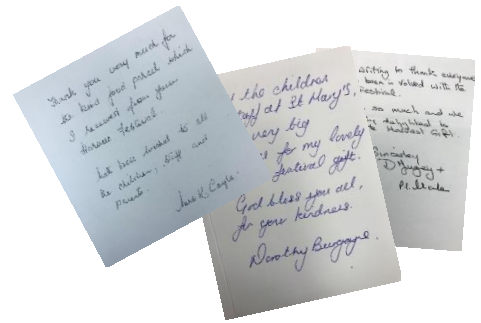 Thank you very much for
the kind food parcel which
I received from your
Harvest Festival.
best wishes to all
the children, staff and
parents.
Mrs K. Coyle.
the children
staff at St Mary's,
very big
for my lovely
festival gift.
God bless you all,
for your kindness.
Dorothy Burgoyne.
writing to thank everyone
been involved with the
Festival.
so much and we
delighted to
Harvest Gift.